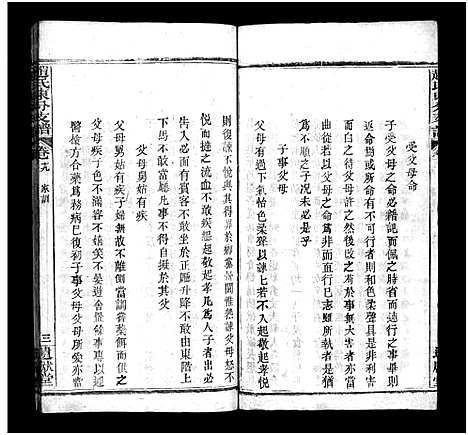 受父母命
子受父母之命必籍記而佩之時省而速行之事畢則
返命焉或所命有不可行者則和色柔聲具是非利害
而白之待父母許之然後改之若不許苟於事無大害者亦
當曲從若以父母之命為非而直行己志雖所執皆是猶
為不順之子況未必是乎
子事父母
父母有過下氣怡色柔聲以諫諫若不入起敬起孝悅
則復諫不悅與其得罪於鄉黨州閭寧熟諫父母怒不
悅而撻之流血不敢疾怨起敬起孝凡為人子者出必
告反必面有賓客不敢坐於正廳升降不敢由東階上
下馬不敢當廳凡事不敢自擬於其父
父母舅姑有疾
父母舅姑有疾子婦無故不離側當調嘗藥餌而
父母疾子色不滿容不嬉笑不晏遊舍置餘事專以迎
醫檢方合藥為務病已復初子事父母父母所愛亦當
趙氏東分支譜
卷十九
家訓
三